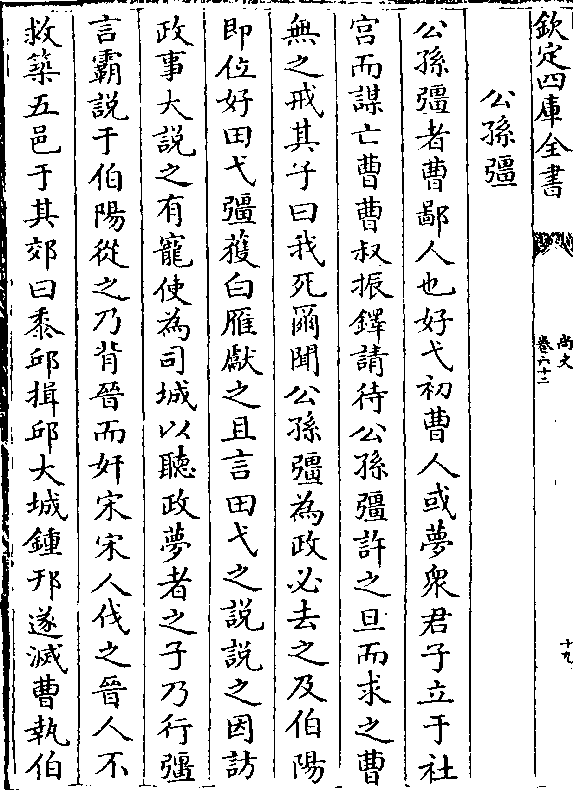 欽定四庫全書
尚史
卷六十二
十九
公孫彊
公孫彊者曹鄙人也好弋初曹人或夢衆君子立于社
宫而謀亡曹曹叔振鐸請待公孫彊許之旦而求之曹
無之戒其子曰我死爾聞公孫彊為政必去之及伯陽
即位好田弋彊獲白雁獻之且言田弋之説説之因訪
政事大説之有寵使為司城以聽政夢者之子乃行彊
言霸説于伯陽從之乃背晉而奸宋宋人伐之晉人不
救築五邑于其郊曰黍邱揖邱大城鍾邗遂滅曹執伯